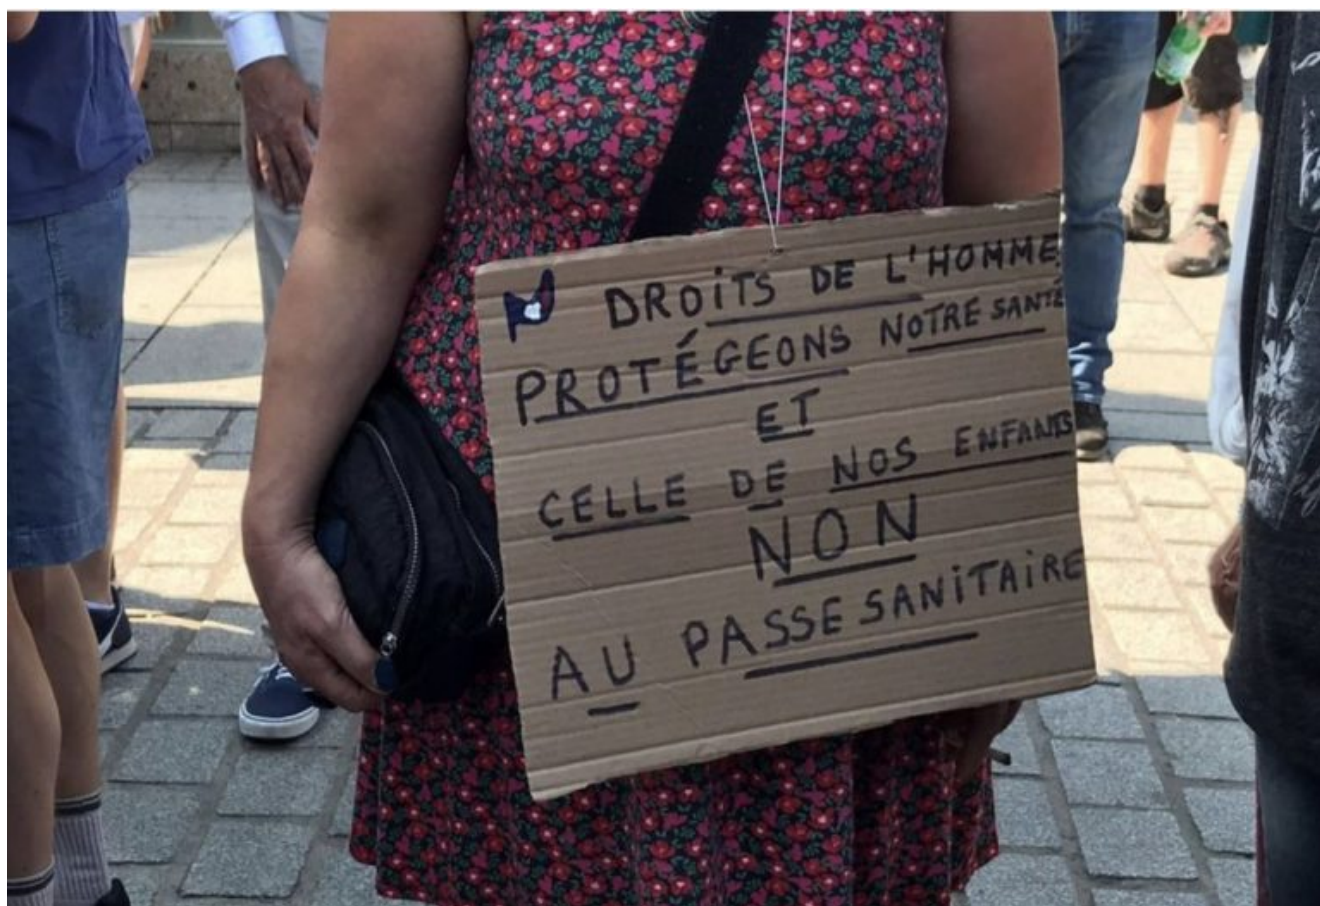 DROITS DE L'HOMME
PROTÉGEONS NOTRE SANTÉ
ET
CELLE DE NOS ENFANTS
NON
AU PASSE SANITAIRE